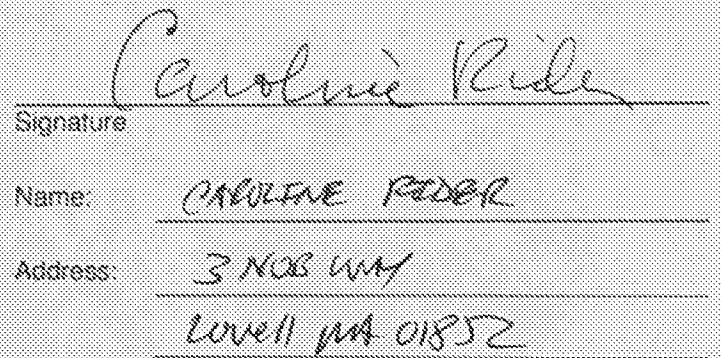 Caroline Rider
Signature
Name: CAROLINE RIDER
Address: 3 NOB WAY
Lowell MA 01852